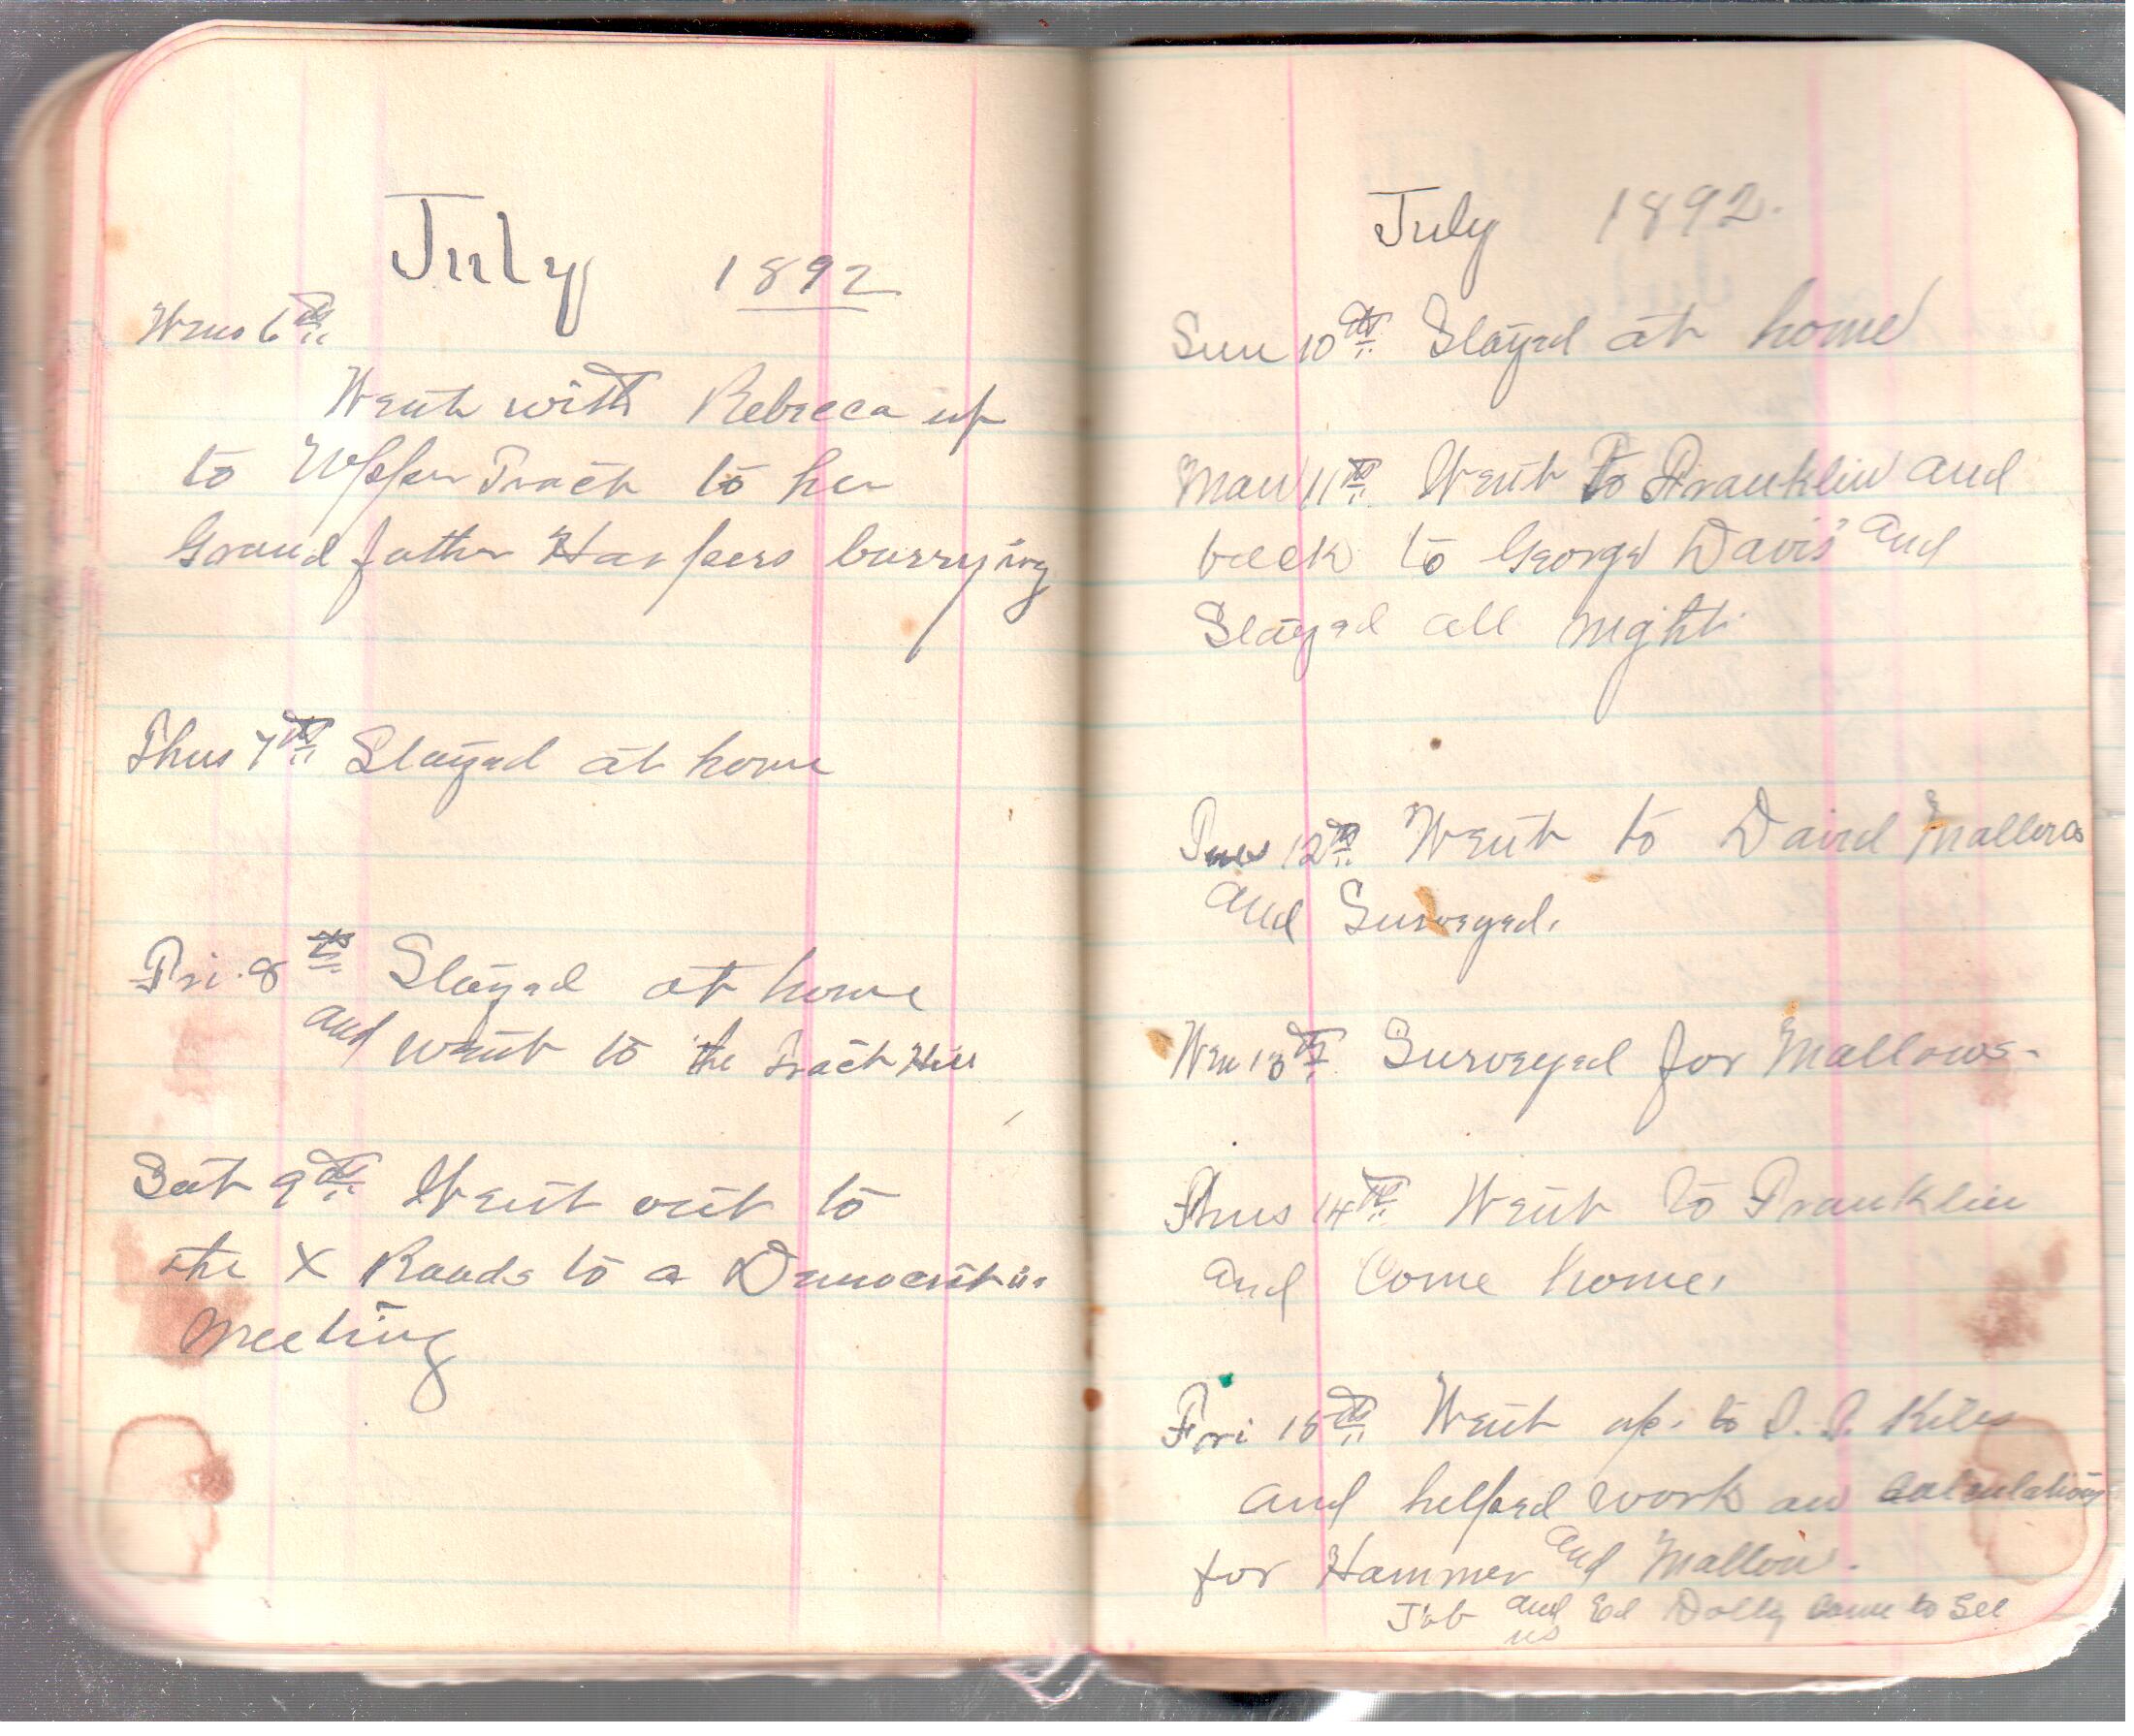 July 1892
Wens 6th
Went with Rebecca up
to Upper Tract to her
Grand father Harpers burrying
Thus 7th Stayed at home
Fri. 8th Stayed at home
and went to the Tract Hill
Sat 9th Went out to
the X Roads to a Democratic
Meeting
July 1892.
Sun 10th Stayed at home
Mon 11th Went to Franklin and
back to George Davis' and
Stayed all night.
Tues 12th Went to David Mallows
and Surveyed.
Wen 13th Surveyed for Mallows-
Thus 14th Went to Franklin
and Come home.
Fri 15th Went up. to Kiles
and helped work on calculations
for Hammer and Mallow.
and Ed Dolly come to see
us